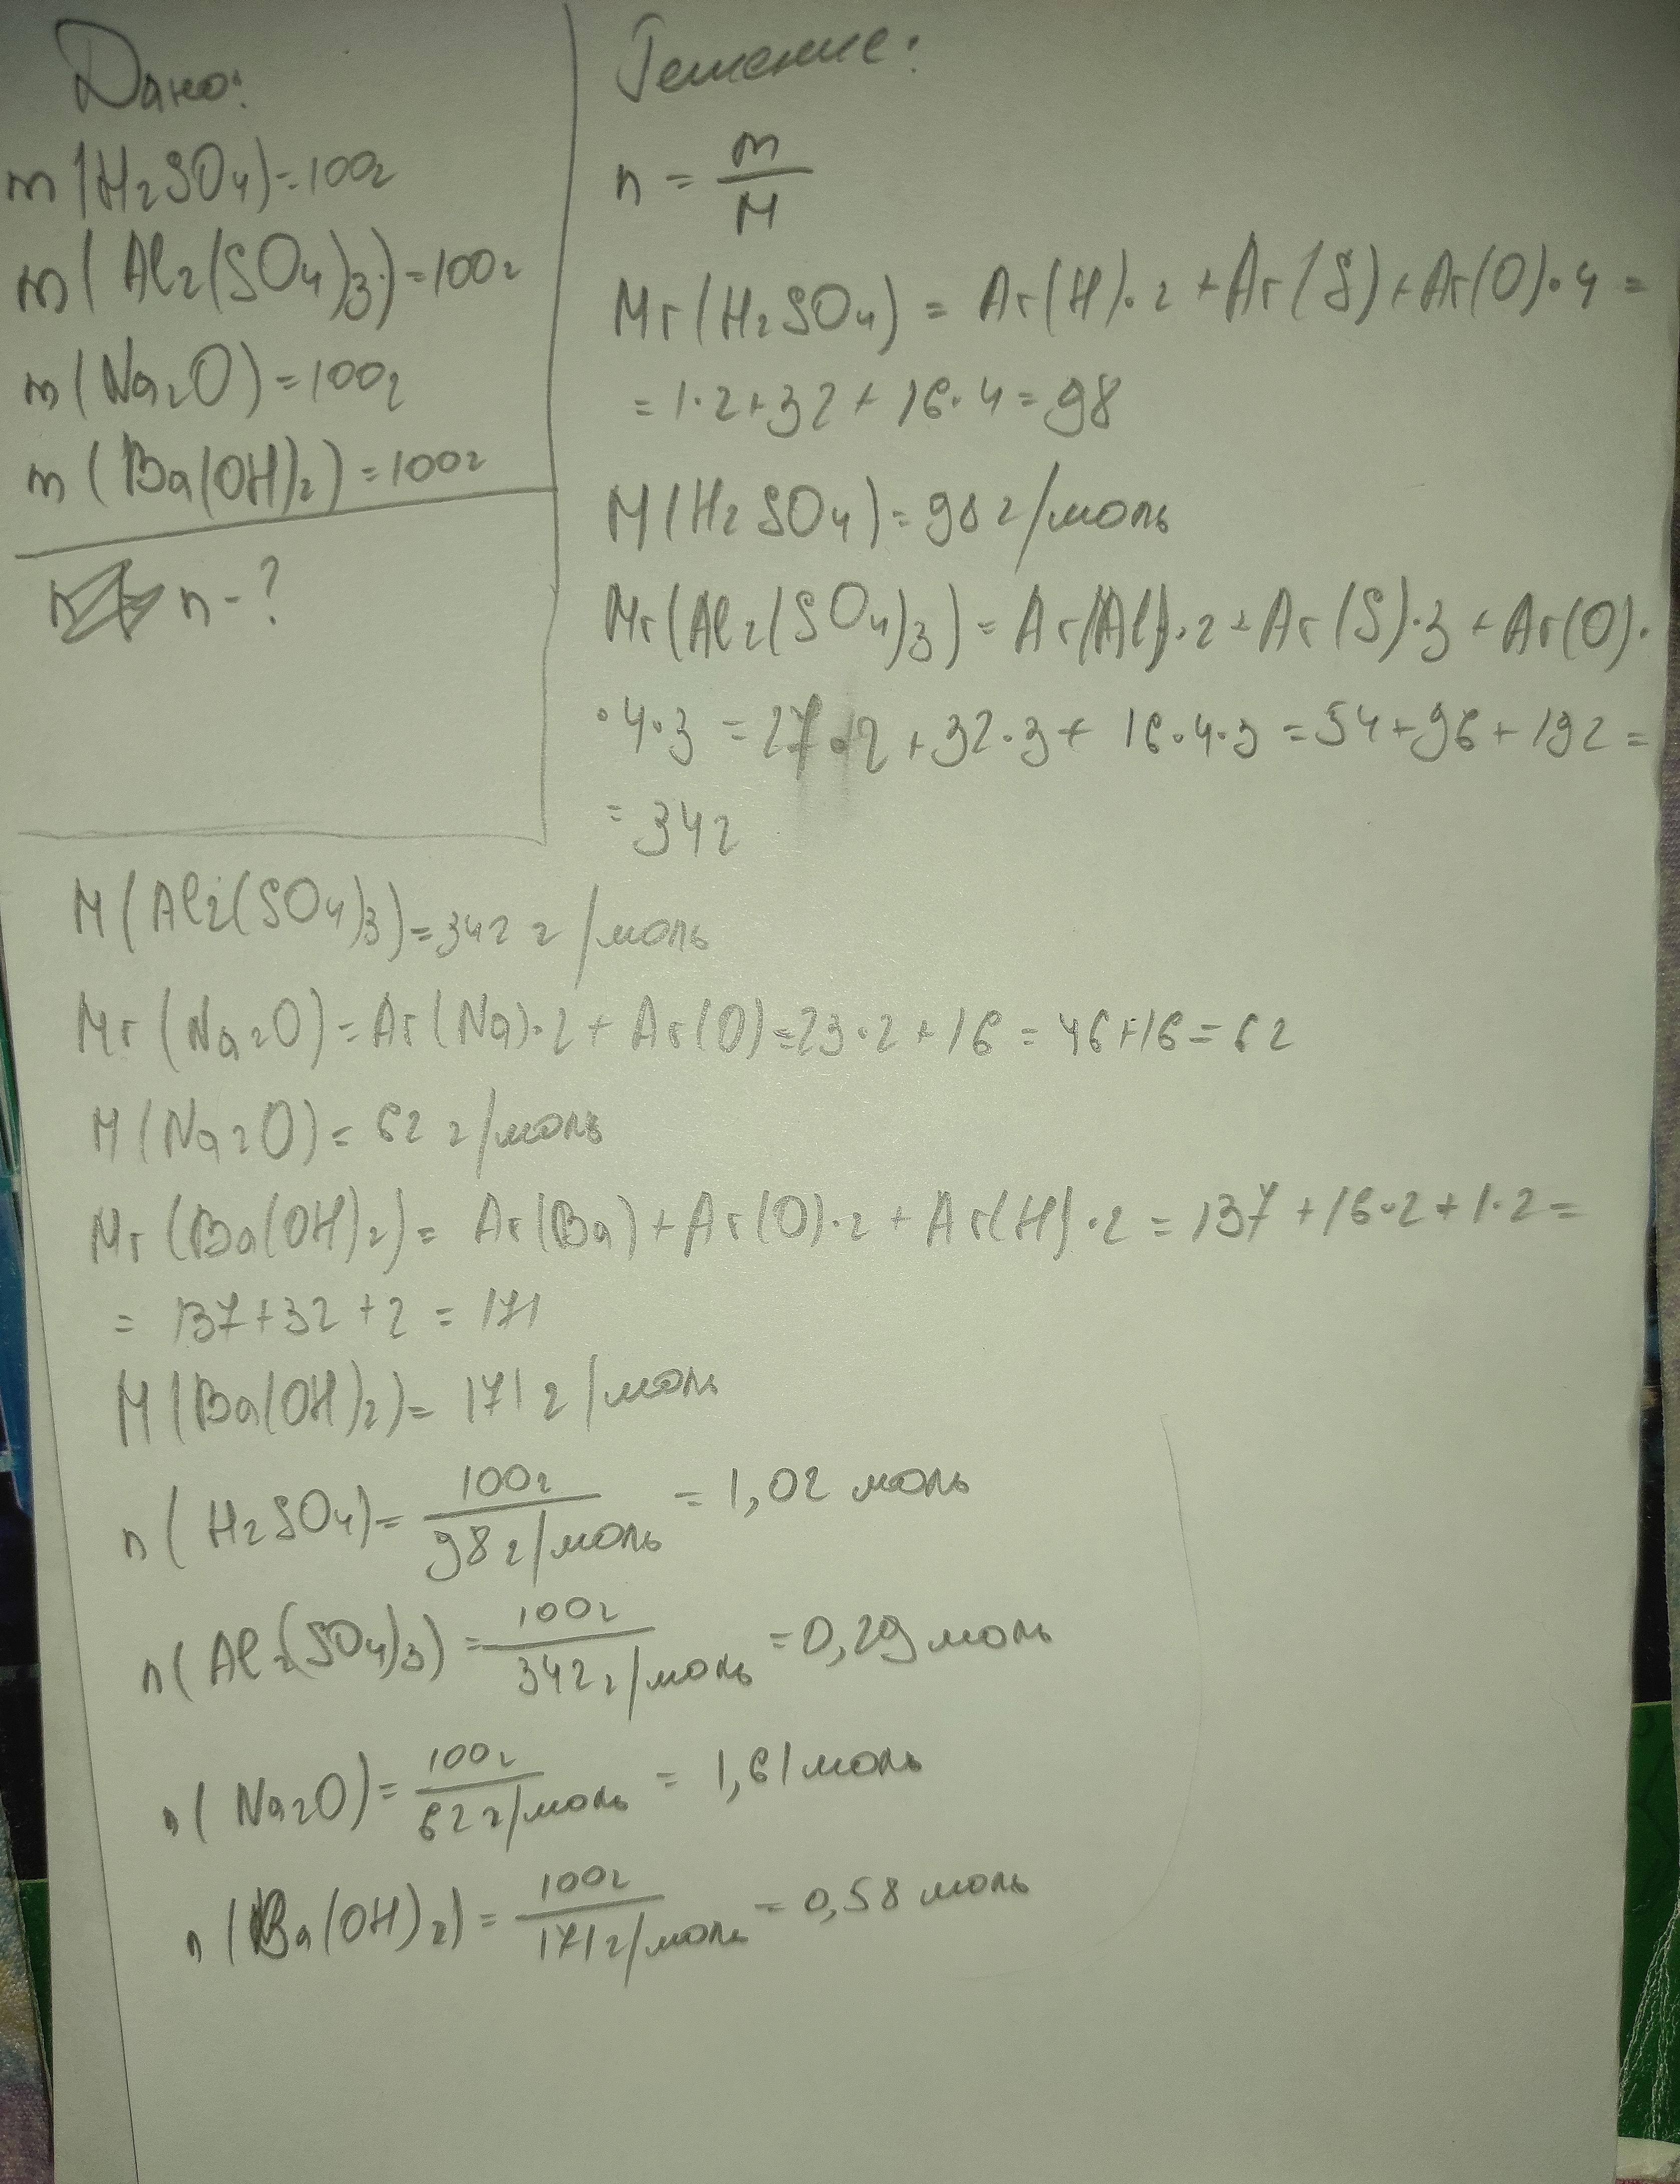 Дано:
m(H₂SO₄)=100г
m(Al₂(SO₄)₃)=100г
m(Na₂O)=100г
m(Ba(OH)₂)=100г
n - ?
Решение:
n = m/M
Mr(H₂SO₄) = Ar(H)·2 + Ar(S) + Ar(O)·4 =
= 1·2+32+16·4=98
M(H₂SO₄)=98 г/моль
Mr(Al₂(SO₄)₃) = Ar(Al)·2 + Ar(S)·3 + Ar(O)·
·4·3 = 27·2+32·3+16·4·3=54+96+192=
= 342
M(Al₂(SO₄)₃)=342 г/моль
Mr(Na₂O)=Ar(Na)·2+Ar(O)=23·2+16=46+16=62
M(Na₂O)= 62 г/моль
Mr(Ba(OH)₂)= Ar(Ba)+Ar(O)·2+Ar(H)·2=137+16·2+1·2=
= 137+32+2 = 171
M(Ba(OH)₂)= 171 г/моль
n(H₂SO₄)= 100г/98 г/моль = 1,02 моль
n(Al₂(SO₄)₃)= 100г/342 г/моль =0,29 моль
n(Na₂O)= 100г/62 г/моль = 1,61 моль
n(Ba(OH)₂)= 100г/171 г/моль = 0,58 моль